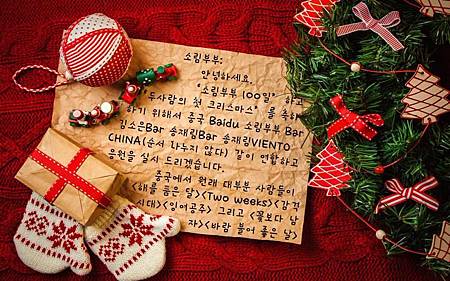 소림부부:
안녕하세요.
"소림부부 100일" 하고
"두사람의 첫 크리스마스" 를 축하
하기 위해서 중국 Baidu 소림부부 Bar
김소은Bar 송재림Bar 송재림VIENTO
CHINA(순서 나누지 않다) 같이 연합하고
응원을 실시 드리겠습니다.
중국에서 원래 대부분 사람들이
<해를 품은 달><Two weeks><감격
시대><잉여공주> 그리고 <꽃보다 남
자><바람 불어 좋은 날>